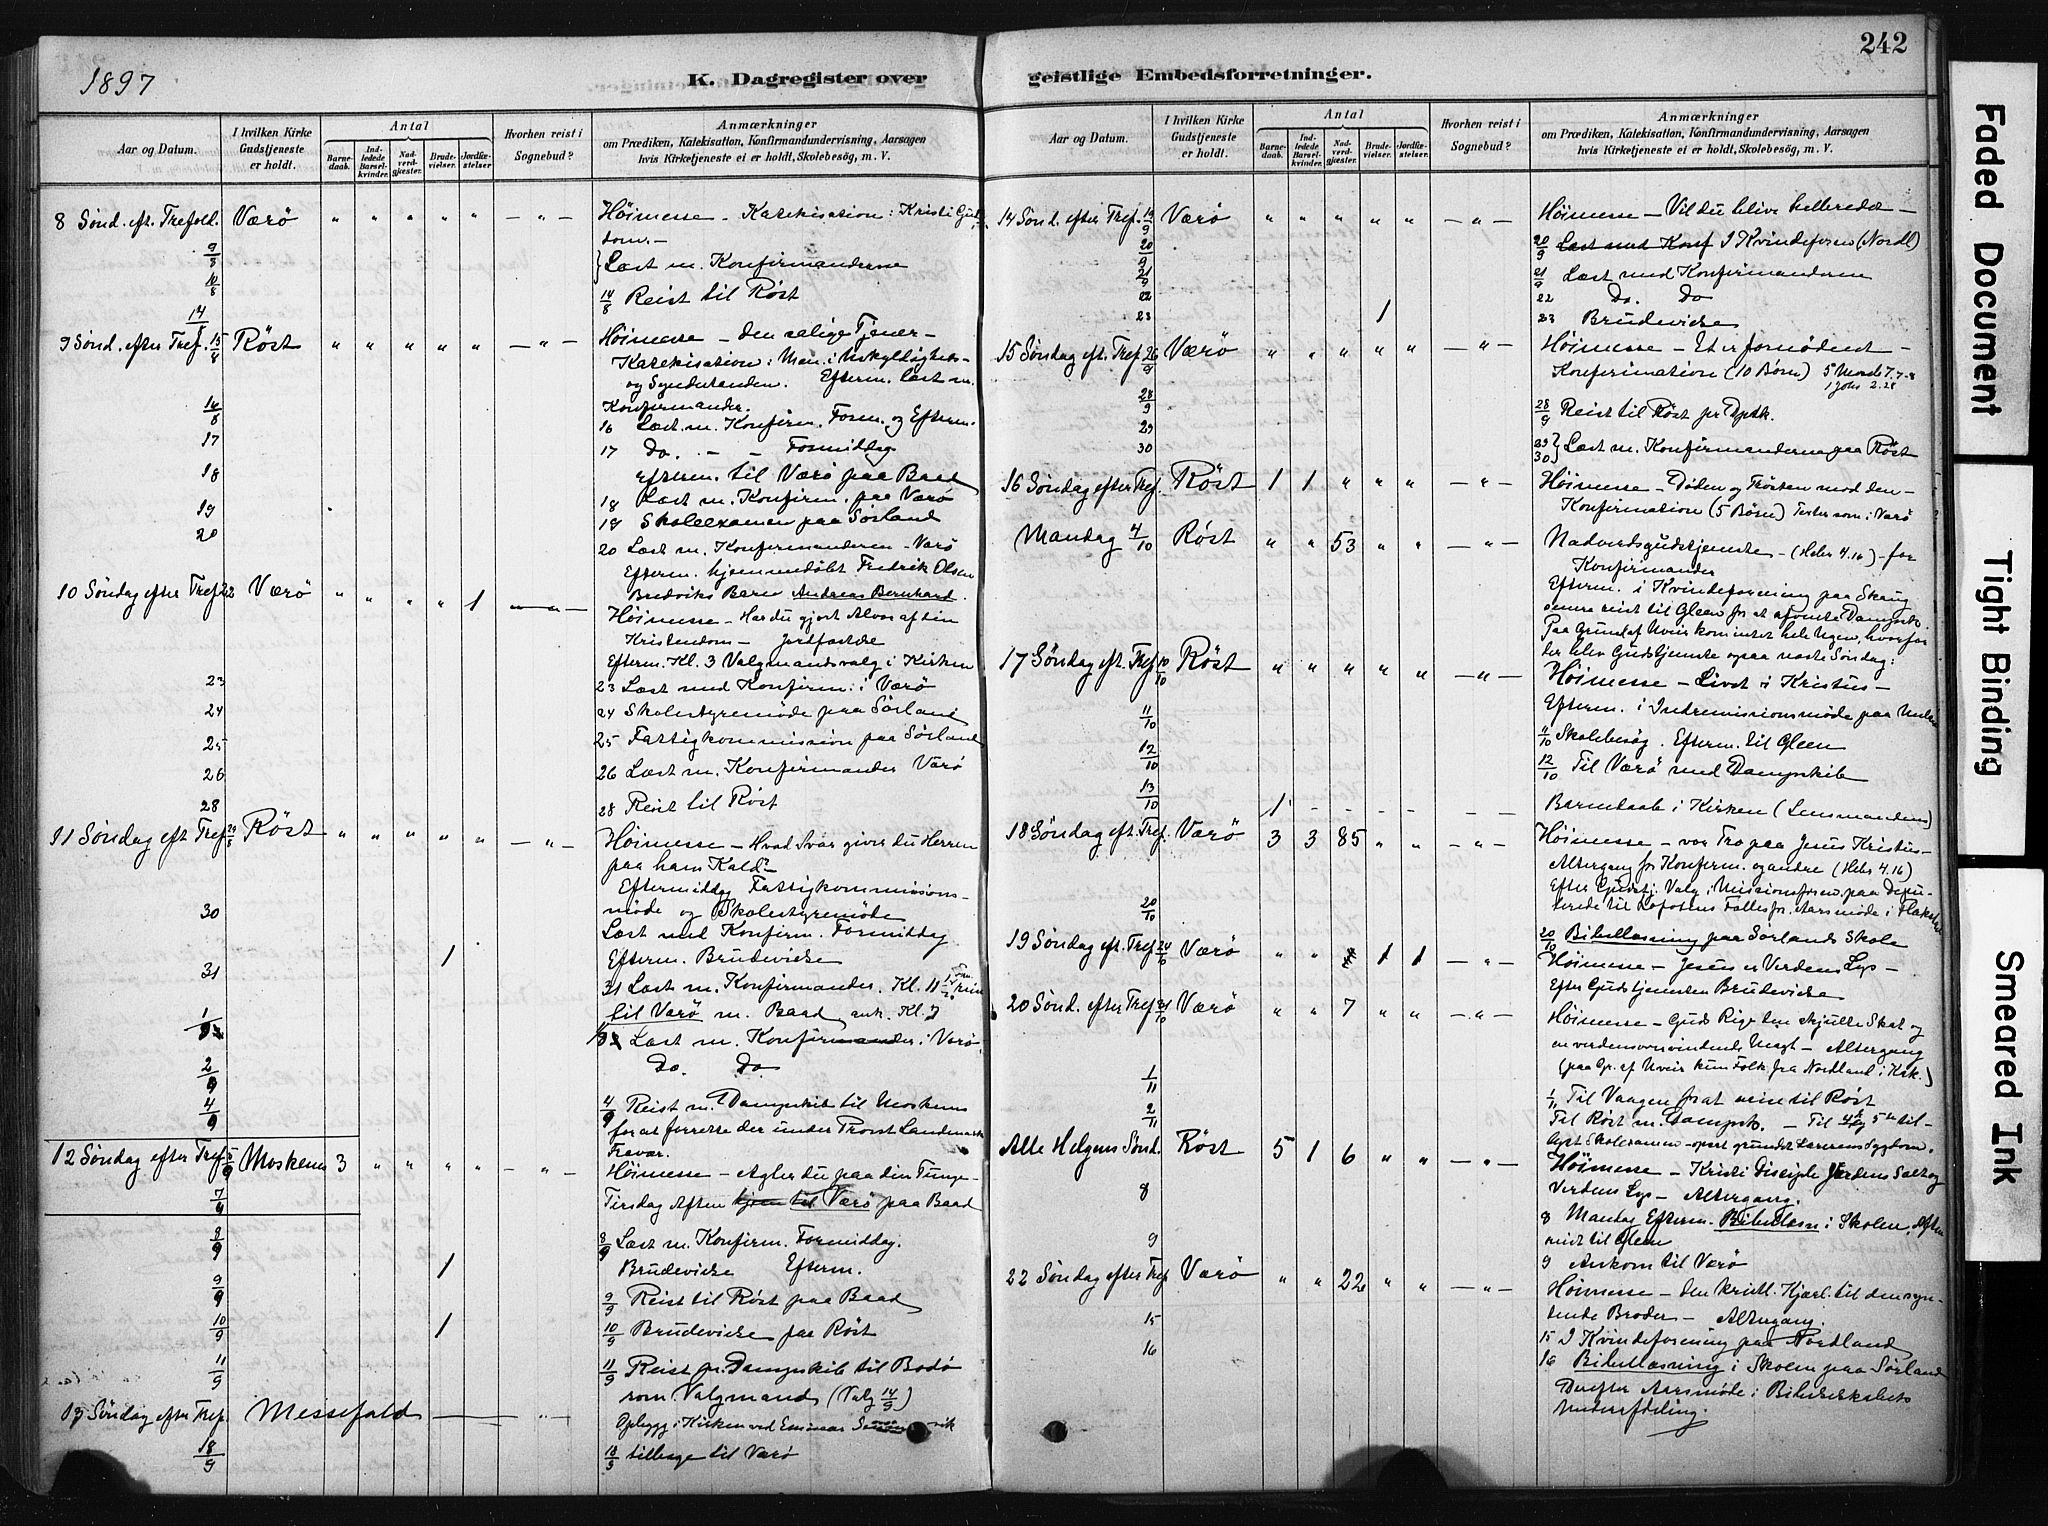 242
1897
K. Dagregister over
geistlige Embedsforretninger.
Aar og Datum.
I hvilken Kirke Gudstjeneste er holdt.
Antal
Barnedaab.
Indledede Barselkvinder.
Nadverdgjæster.
Brudevielser.
Jordfæstelser.
Hvorhen reist i Sognebud?
Anmærkninger
om Prædiken, Katekisation, Konfirmandundervisning, Aarsagen
hvis Kirketjeneste ei er holdt, Skolebesög, m. V.
8 Sönd. eft. Trefold. Værö " " " " " — " — Höimesse - Katekisation: Kristi Gud
dom. -
9/8 Læst m. Konfirmanderne
14/8 Reist til Röst
9 Sönd. efter Tref. 15/8 Röst " " " " " — " — Höimesse - Den salige Tjener -
Katekisation: Men. i Uskyldigheds-
og Syndstanden. Efterm. Læst m.
Konfirmander.
16 Læst m. Konfirm. Form. og Efterm.
17 Do. - - Formiddag
Efterm. til Værö paa Baad
18 Læst m. Konfirm. paa Værö
19 Skoleexamen paa Sörland
20 Læst m. Konfirmanderne - Værö
Efterm. hjemmedöbt Fredrik Olsen
Bredviks Barn Andreas Bernhard.
10 Söndag efter Tref 22 Værö " " " " 1 — " — Höimesse - Har du gjort Alvor af din
Kristendom - Jordfæstede
Efterm. Kl. 3 Valgmandsvalg i Kirken
23 Læst med Konfirm: i Værö
24 Skolestyremöde paa Sörland
25 Fattigkommission paa Sörland
26 Læst m. Konfirmander Værö
28 Reist til Röst
11 Söndag eft Tref 29/8 Röst " " " " " — " — Höimesse - Hvad Svar giver du Herren
paa hans Kald -
Eftermiddag Fattigkommissions-
möde og Skolestyremöde
30 Læst med Konfirm. Formiddag
1 Efterm. Brudevielse
31 Læst m. Konfirmander. Kl. 11
til Værö m. Baad, ank. Kl. 7
1/9 Læst m. Konfirmander i Værö
2/9 Do. Do
4/9 Reist m. Dampskib til Moskenes
for at forrette der under Provst Landmarks
Fravær.
12 Söndag efter Tref 5/9 Moskenes 3 " " " " — " — Höimesse - Agter du paa din Tunge -
7/9 Tirsdag Aften hjem til Værö paa Baad
8/9 Læst m. Konfirm. Formiddag.
1 Brudevielse Efterm.
9/9 Reist til Röst paa Baad
10/9 1 Brudevielse paa Röst
11/9 Reist pr. Dampskib til Bodö
som Valgmand (Valg 14/9)
13 Söndag efter Tref. Messefald — " — Oplæg i Kirken ved
18/9 tilbage til Værö
Aar og Datum.
I hvilken Kirke Gudstjeneste er holdt.
Antal
Barnedaab.
Indledede Barselkvinder.
Nadverdgjæster.
Brudevielser.
Jordfæstelser.
Hvorhen reist i Sognebud?
Anmærkninger
om Prædiken, Katekisation, Konfirmandundervisning, Aarsagen
hvis Kirketjeneste ei er holdt, Skolebesög, m. V.
14 Sönd. efter Tref. 19/9 Værö " " " " " — " — Höimesse - Vil du blive helbredet -
20/9 Læst med Konf I Kvindeforen (Nordl)
21/9 Læst med Konfirmanderne
22 Do. Do
23 1 Brudevielse
15 Söndag eft. Tref. 26/9 Værö " " " " " — " — Höimesse - Et er fornødent -
Konfirmation (10 Börn) 5 Moseb 7.7-8
1 Joh. 2.28
28/9 Reist til Röst pr Dpsk.
29 30 Læst m. Konfirmanderne paa Röst
16 Söndag efter Tref. Röst 1 1 " " " — " — Höimesse - Döden og Trösten mod den -
Konfirmation (5 Börn) Texter som i Værö
Mandag 4/10 Röst " " 53 " " — " — Nadverdsgudstjeneste - (Hebr 4.16) - for
Konfirmander
Efterm. i Kvindeforening paa
senere reist til Gleen for at afvente Dampsk.
Paa Grund af Uveir kom intet hele Ugen, hvorfor
der blev Gudstjeneste ogsaa næste Söndag:
17 Söndag eft. Tref 10/10 Röst " " " " " — " — Höimesse - Livet i Kristus -
Efterm. i Indremissionsmöde paa
11/10 Skolebesög. Efterm. til Gleen
12/10 Til Værö med Dampskib
13/10 1 - - - - - Barnedaab i Kirken (Lensmandens)
18 Söndag eft. Tref. Værö 3 3 85 " " — " — Höimesse - vor Tro paa Jesus Kristus -
Altergang for Konfirm. og andre (Hebr 4.16)
Efter Gudstj. Valg i Missionsforen. paa Depu-
terede til Lofotens Fællesfor. Aarsmöde i Flakstad
20/10 Bibellæsning paa Sörlands Skole
19 Söndag eft. Tref 24/10 Værö " " 1 1 — " — Höimesse - Jesus er Verdens Lys -
Efter Gudstjenesten Brudevielse
20 Sönd. efter Tref 31/10 Værö " " 7 " " — " — Höimesse - Guds Rige den skjulte Skat og
en verdensovervindende Magt - Altergang
(paa Gr. af Uveir kun Folk fra Nordland i Kirk.)
1/11 Til Vaagen for at reise til Röst
2/11 Til Röst m. Dampsk. - Til 4de og 5te til-
lyst Skolexamen - opsat grundet Lærerens Sygdom.
Alle Helgens Sönd. Röst 5 1 6 " " — " — Höimesse - Kristi Disciple Jordens Salt og
Verdens Lys - Altergang.
8 Mandag Efterm. Bibellæsn i Skolen, Aften
reist til Gleen
9 Ankom til Værö
22 Söndag efter Tref Værö " " 22 " " — " — Höimesse - Den kristl. Kjærl. til den syn-
dende Broder - Altergang.
15 I Kvindeforening paa Nordland
16 Bibellæsning i Skolen paa Sörland
Derefter Aarsmöde i Bibelselskabets
Underafdeling.
Faded Document
Tight Binding
Smeared Ink